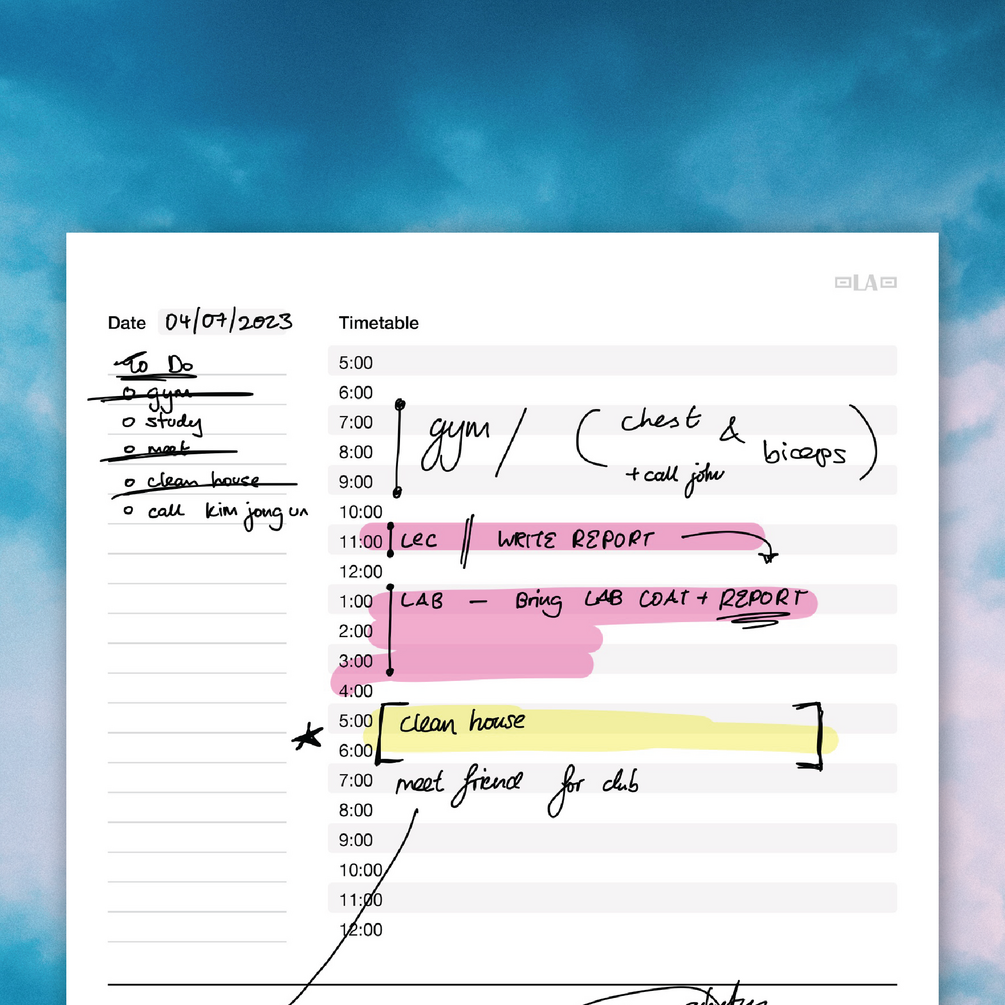 LA
Date 04/07/2023 Timetable
To Do
gym
study
meet
clean house
call kim jong un
5:00
6:00
7:00 gym / (chest & biceps)
8:00
9:00 + call john
10:00
11:00 LEC || WRITE REPORT
12:00
1:00 LAB — Bring LAB COAT + REPORT
2:00
3:00
4:00
5:00 [clean house]
6:00
7:00 meet friend for club
8:00
9:00
10:00
11:00
12:00